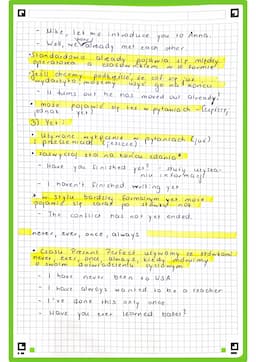 - Mike, let me introduce you to Anna.
Well, we've already met each other.
• Standardowo already pojawia się między
operatorem a czasownikiem w 3 formie
Jeśli chcemy podkreślić, że coś się już
wydarzyło, możemy użyć go na końcu
- It turns out he has moved out already!
• może pojawić się też w pytaniach -
jednak yet)
3) Yet:
• Używane wyłącznie w pytaniach (już)
i przeczeniach (jeszcze)
• zazwyczaj stoi na końcu zdania
- Have you finished yet? -
- I haven't finished writing yet
• w stylu bardziej formalnym yet może
pojawić się zaraz o słówku not
- The conflict has not yet ended.
never, ever, once, always
• Czasu Present Perfect używamy ze słówkami
never, ever, once, always, kiedy mówimy
o swoim doświadczeniu życiowym
- I have never been to USA
- I have always wanted to be a teacher
- I've done this only once
- Have you ever learned